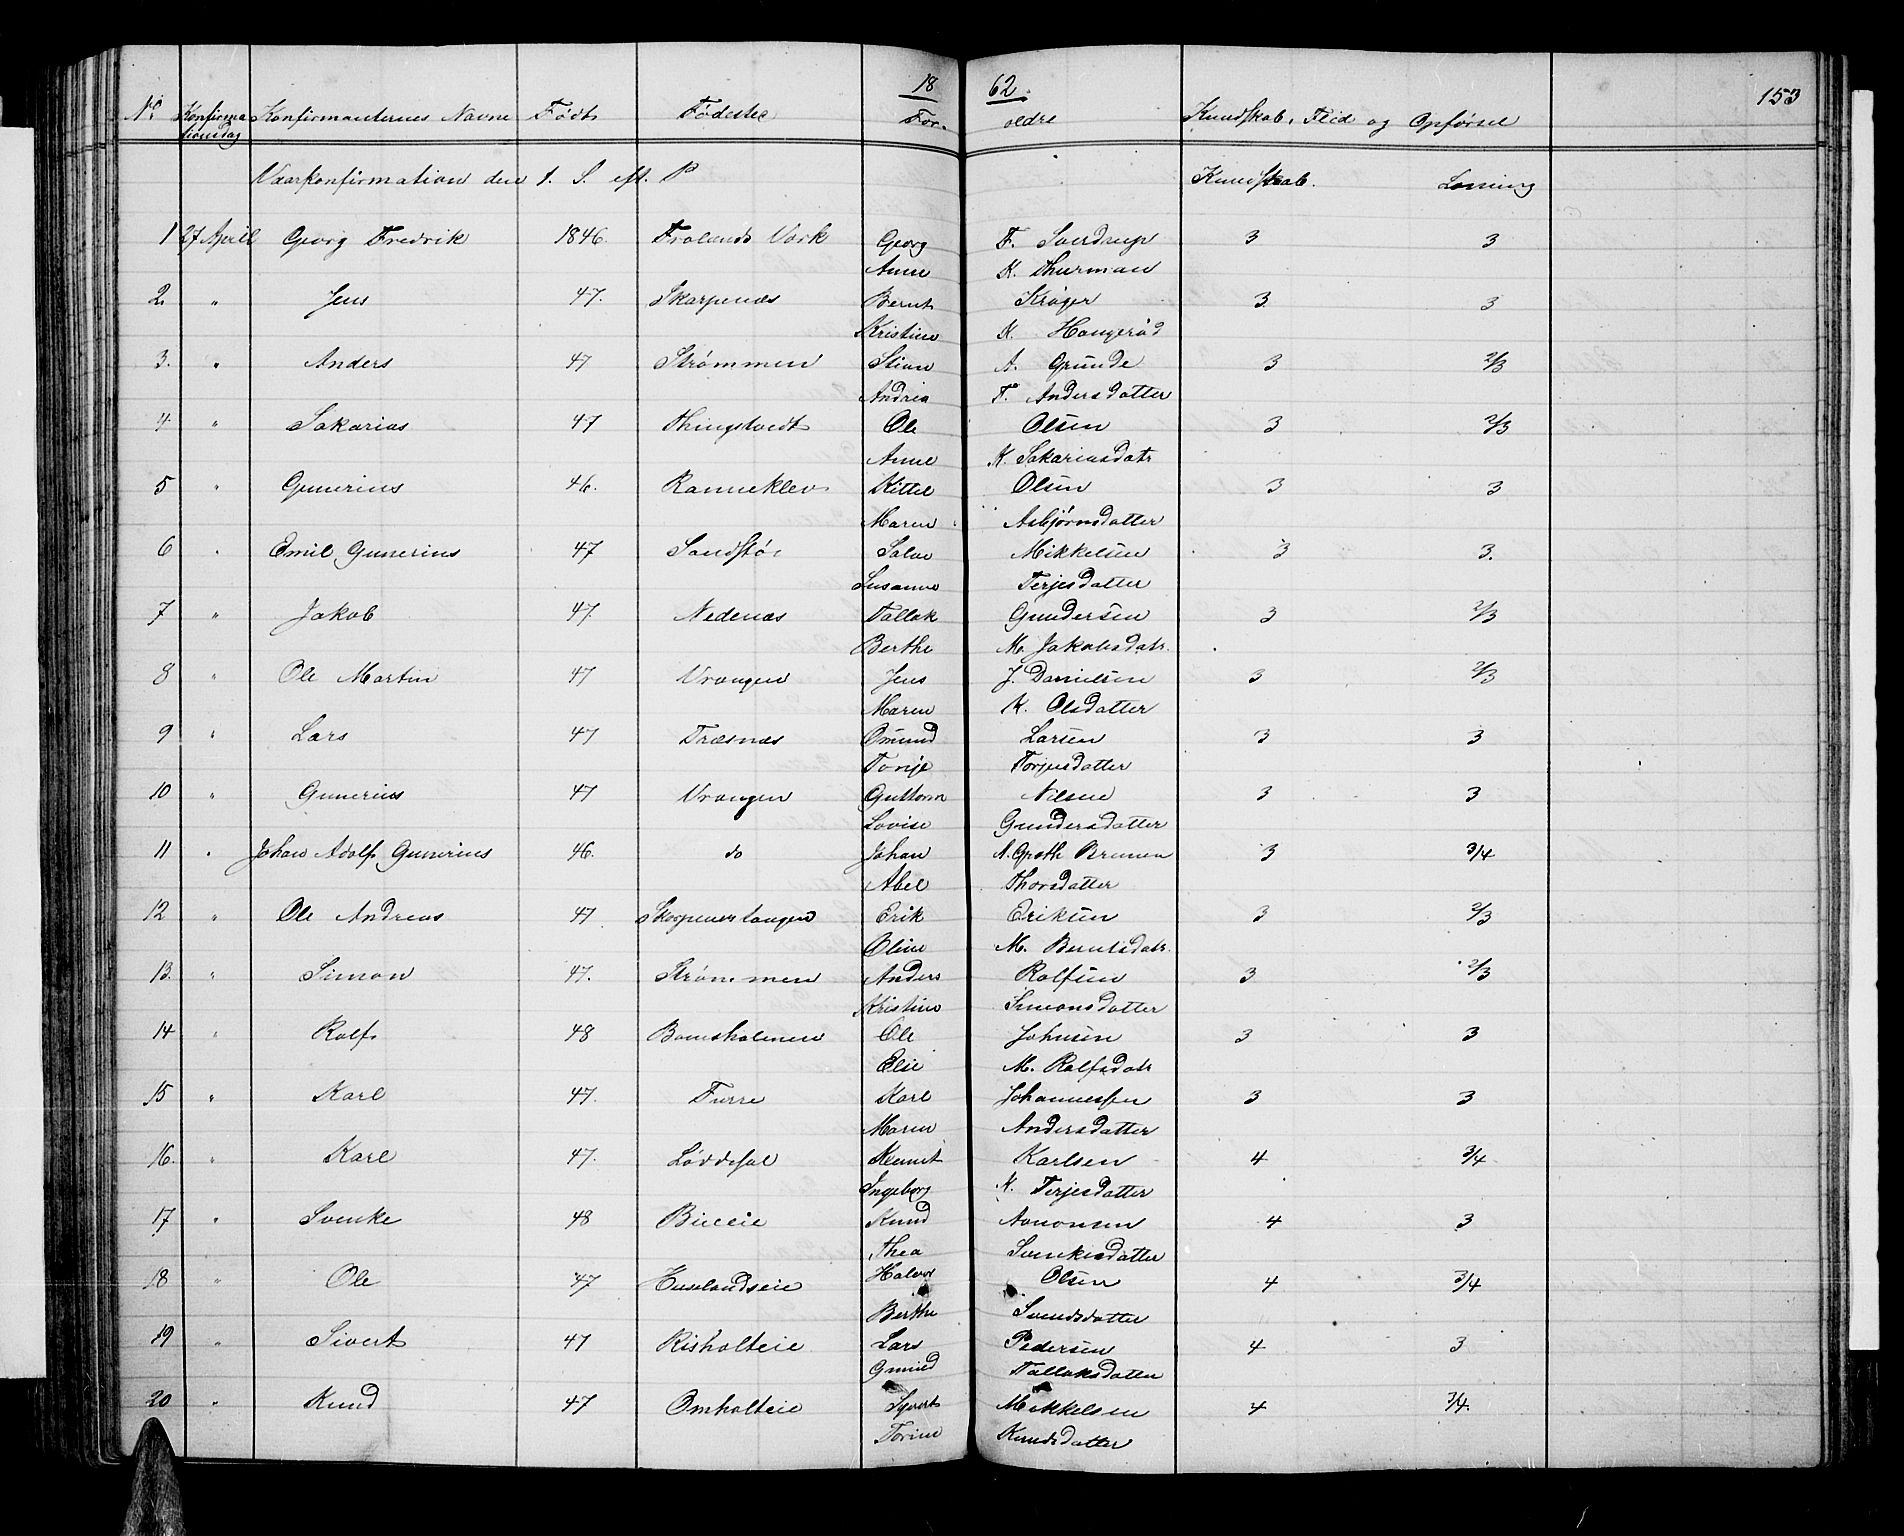 18 62. 153
No. Konfirma Konfirmanternes Navne Født Fødested For- ældre Kundskab, Flid og Opførsel
tionsdag
Vaarkonfirmation den 1. S. eft. P Kundskab. Læsning
1 27 April Georg Fredrik 1846. Frolands Værk Georg F. Sverdrup 3 3
Anne K. Thurman
2. " Jens 47. Skarpenæs Bernt Krøger 3 3
Kristine K.
3. " Anders 47 Strømmen Stian A. Grunde 3 2/3
Andrea F. Andersdatter
4. " Sakarias 47 Thingstvedt Ole Olsen 3 2/3
Anne K. Sakariasdatr
5 " Gunerius 46. Ranneklev Kittel Olsen 3 3
Maren Asbjørnsdatter
6 " Emil Gunerius 47 Salve Mikkelsen 3 3.
Susanne Terjesdatter
7 " Jakob 47. Nedenæs Tallak Gundersen 3 2/3
Berthe M. Jakobsdatr.
8 " Ole Martin 47 Vrangen Jens J. Danielsen 3 2/3
Maren K. Olsdatter
9 " Lars 47 Træsnæs Omund Larsen 3 3
Tonje Torjusdatter
10 " Gunerius 47 Vrangen Guttorm Nilsen 3 3
Lovise Gundersdatter
11 " Johan Adolf Gunerius 46. do Johan N. Groth Brunen 3 3/4
Abel Thorsdatter
12 " Ole Andreas 47 Erik Eriksen 3 2/3
Oline M. Berntsdatr.
13. " Simon 47. Strømmen Anders Rolfsen 3 2/3
Kristine Simonsdatter
14 " Rolf 48 Bomsholmen Ole Johnsen 3 3
Elie M. Rolfsdatr
15 " Karl 47. Furre Karl Johannessen 3 3
Maren Andersdatter
16. " Karl 47. Løddesøl Karlsen 4 3/4
Ingeborg K. Terjesdatter
17 " Svenke 48 Bieeie Knud Aanonsen 4 3
Thea Svenkesdatter
18 " Ole 47 Huselandseie Halvor Olsen 4 3/4
Berthe Svendsdatter
19 " Sivert 47 Risholteie Lars Pedersen 4 3
Gunild Tallaksdatter
20 " Knud 47 Omholteie Syvert Mikkelsen 4 3/4.
Torine Knudsdatter